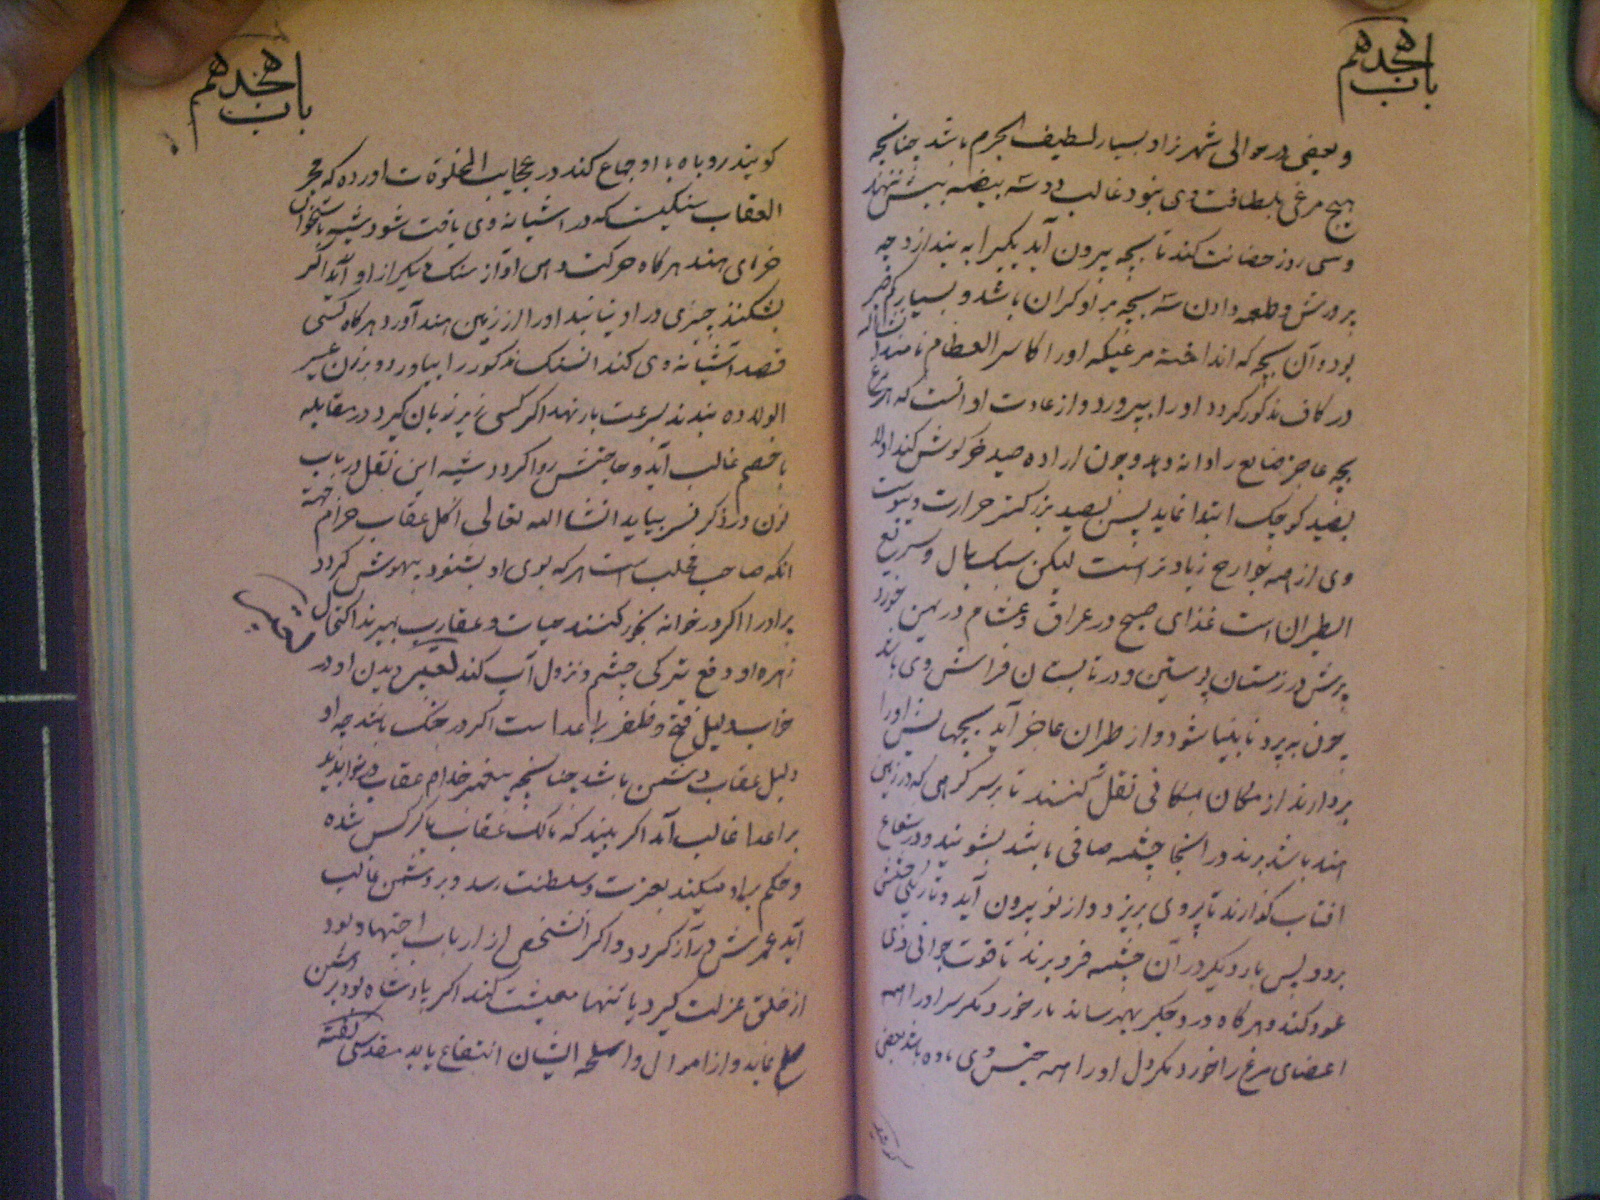 باب هجدهم
و بعضی در حوالی شهر زاد و بسیار لطیف الجرم باشد چنانچه
هیچ مرغی بلطافت وی نبود غالب دو سه بیضه بیش ننهد
و سی روز حضانت کند تا بچه بیرون آید یکیرا به بندازد چه
پرورش و طعمه دادن سه بچه بر او کران باشد و بسیار کم صبر
بود و آن بچه که انداخته مرغیکه او را کاسر العظام نامند
در کاف مذکور کردد او را بپرورد و از عادت او آنست که هر مرغ
بچه عاجز ضایع را دانه دهد و چون اراده صید خرکوش کند اولا
بصید کوچک ابتدا نماید پس بصید بزرکتر حرارت و یبوست
وی از همه جوارح زیادتر است لیکن سبک بال و سریع
الطیران است غذای صبح در عراق و عشام در یمن خورد
پرش در زمستان پوستین و در تابستان فراش وی باشد
چون پیر و نابینا شود و از طیران عاجز آید بچهایش او را
بردارند از مکان بمکانی نقل کنند تا بر سر کوهی که در زمین
هند باشد برند در انجا چشمه صافی باشد بشویند و در شعاع
افتاب کذارند تا پر وی بریزد و از نو بیرون آید و تاریکی چشمش
برود پس بار دیکر در آن چشمه فرو برند تا قوت جوانی وی
عود کند و هر کاه درد جکر بهمرساند بار خورد مکر سر او را همه
اعضای مرغ را خورد مکر دل او را همه جنس وی ماده باشد بعضی
کویند
باب هجدهم
کویند روباه با او جماع کند در عجایب المخلوقات اورده که حجر
العقاب سنکیست که در اشیانه وی یافت شود شبیه باستخوان
خرمای هند هر کاه حرکت دهی اواز سنک دیکر از او آید اکر
بشکنند چیزی در او نیابند او را از زمین هند آورد هر کاه کسی
قصد آشیانه وی کند انسنک مذکور را بیاورد و بر زن عسیر
الولاده بندند بسرعت بار نهد اکر کسی زیر زبان کیرد در مقابله
با خصم غالب آید و حاجتش روا کردد شبیه این نقل در باب
نون در ذکر نسر بیاید انشا الله تعالی اکل عقاب حرام جهة
انکه صاحب مخلب است هر که بوی او بشنود بیهوش کردد
پر او را اکر در خانه بخور کنند حیات و عقارب بمیرند اکتحال
زهره او دفع تیرکی چشم و نزول آب کند تعبیر دیدن او در
خواب دلیل فتح و ظفر بر اعداست اکر در جنک باشد چه او
دلیل عقاب دشمن باشد چنانچه پیغمبر خدا هم عقاب در خواب دید
بر اعدا غالب آمد اکر بیند که مالک عقاب یا کرکس شده
و حکم بر او میکند بعزت و سلطنت رسد و بر دشمن غالب
آید عمرش دراز کردد و اکر انشخص از ارباب اجتهاد بود
از خلق عزلت کیرد یا تنها معیشت کند اکر پادشاه بود بر دشمن
صلح نماید و از اموال و اسلحه ایشان انتفاع یابد مقدسی کفته